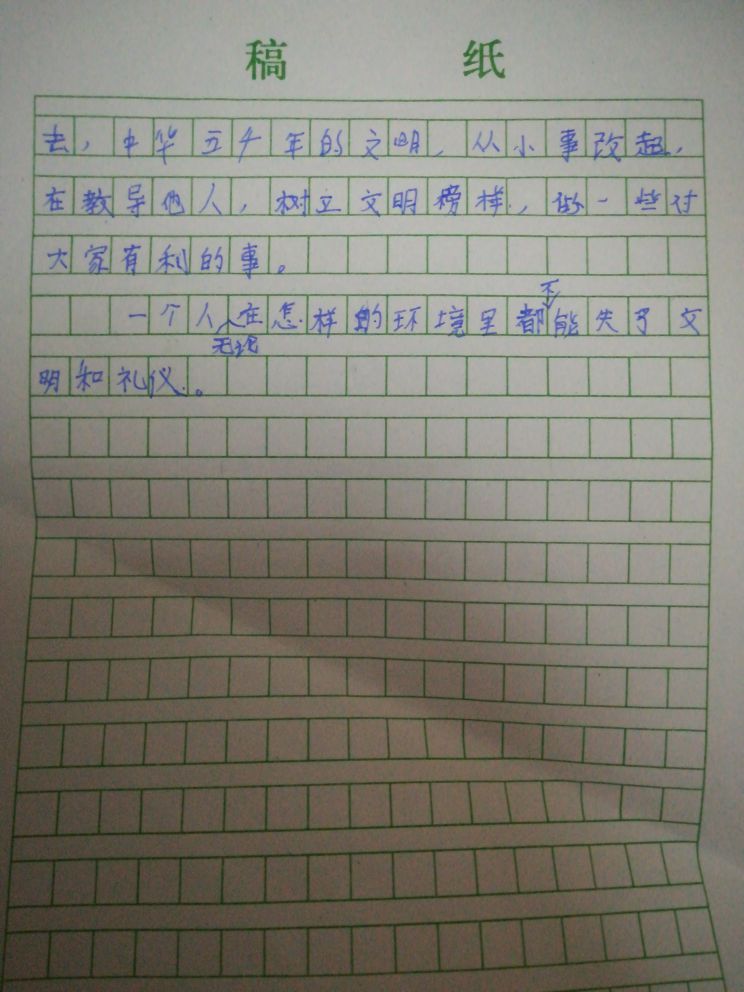 稿 纸
去，中华五千年的文明，从小事改起，
在教导他人，树立文明榜样，做一些对
大家有利的事。
一个人无论在怎样的环境里都不能失了文
明和礼仪。